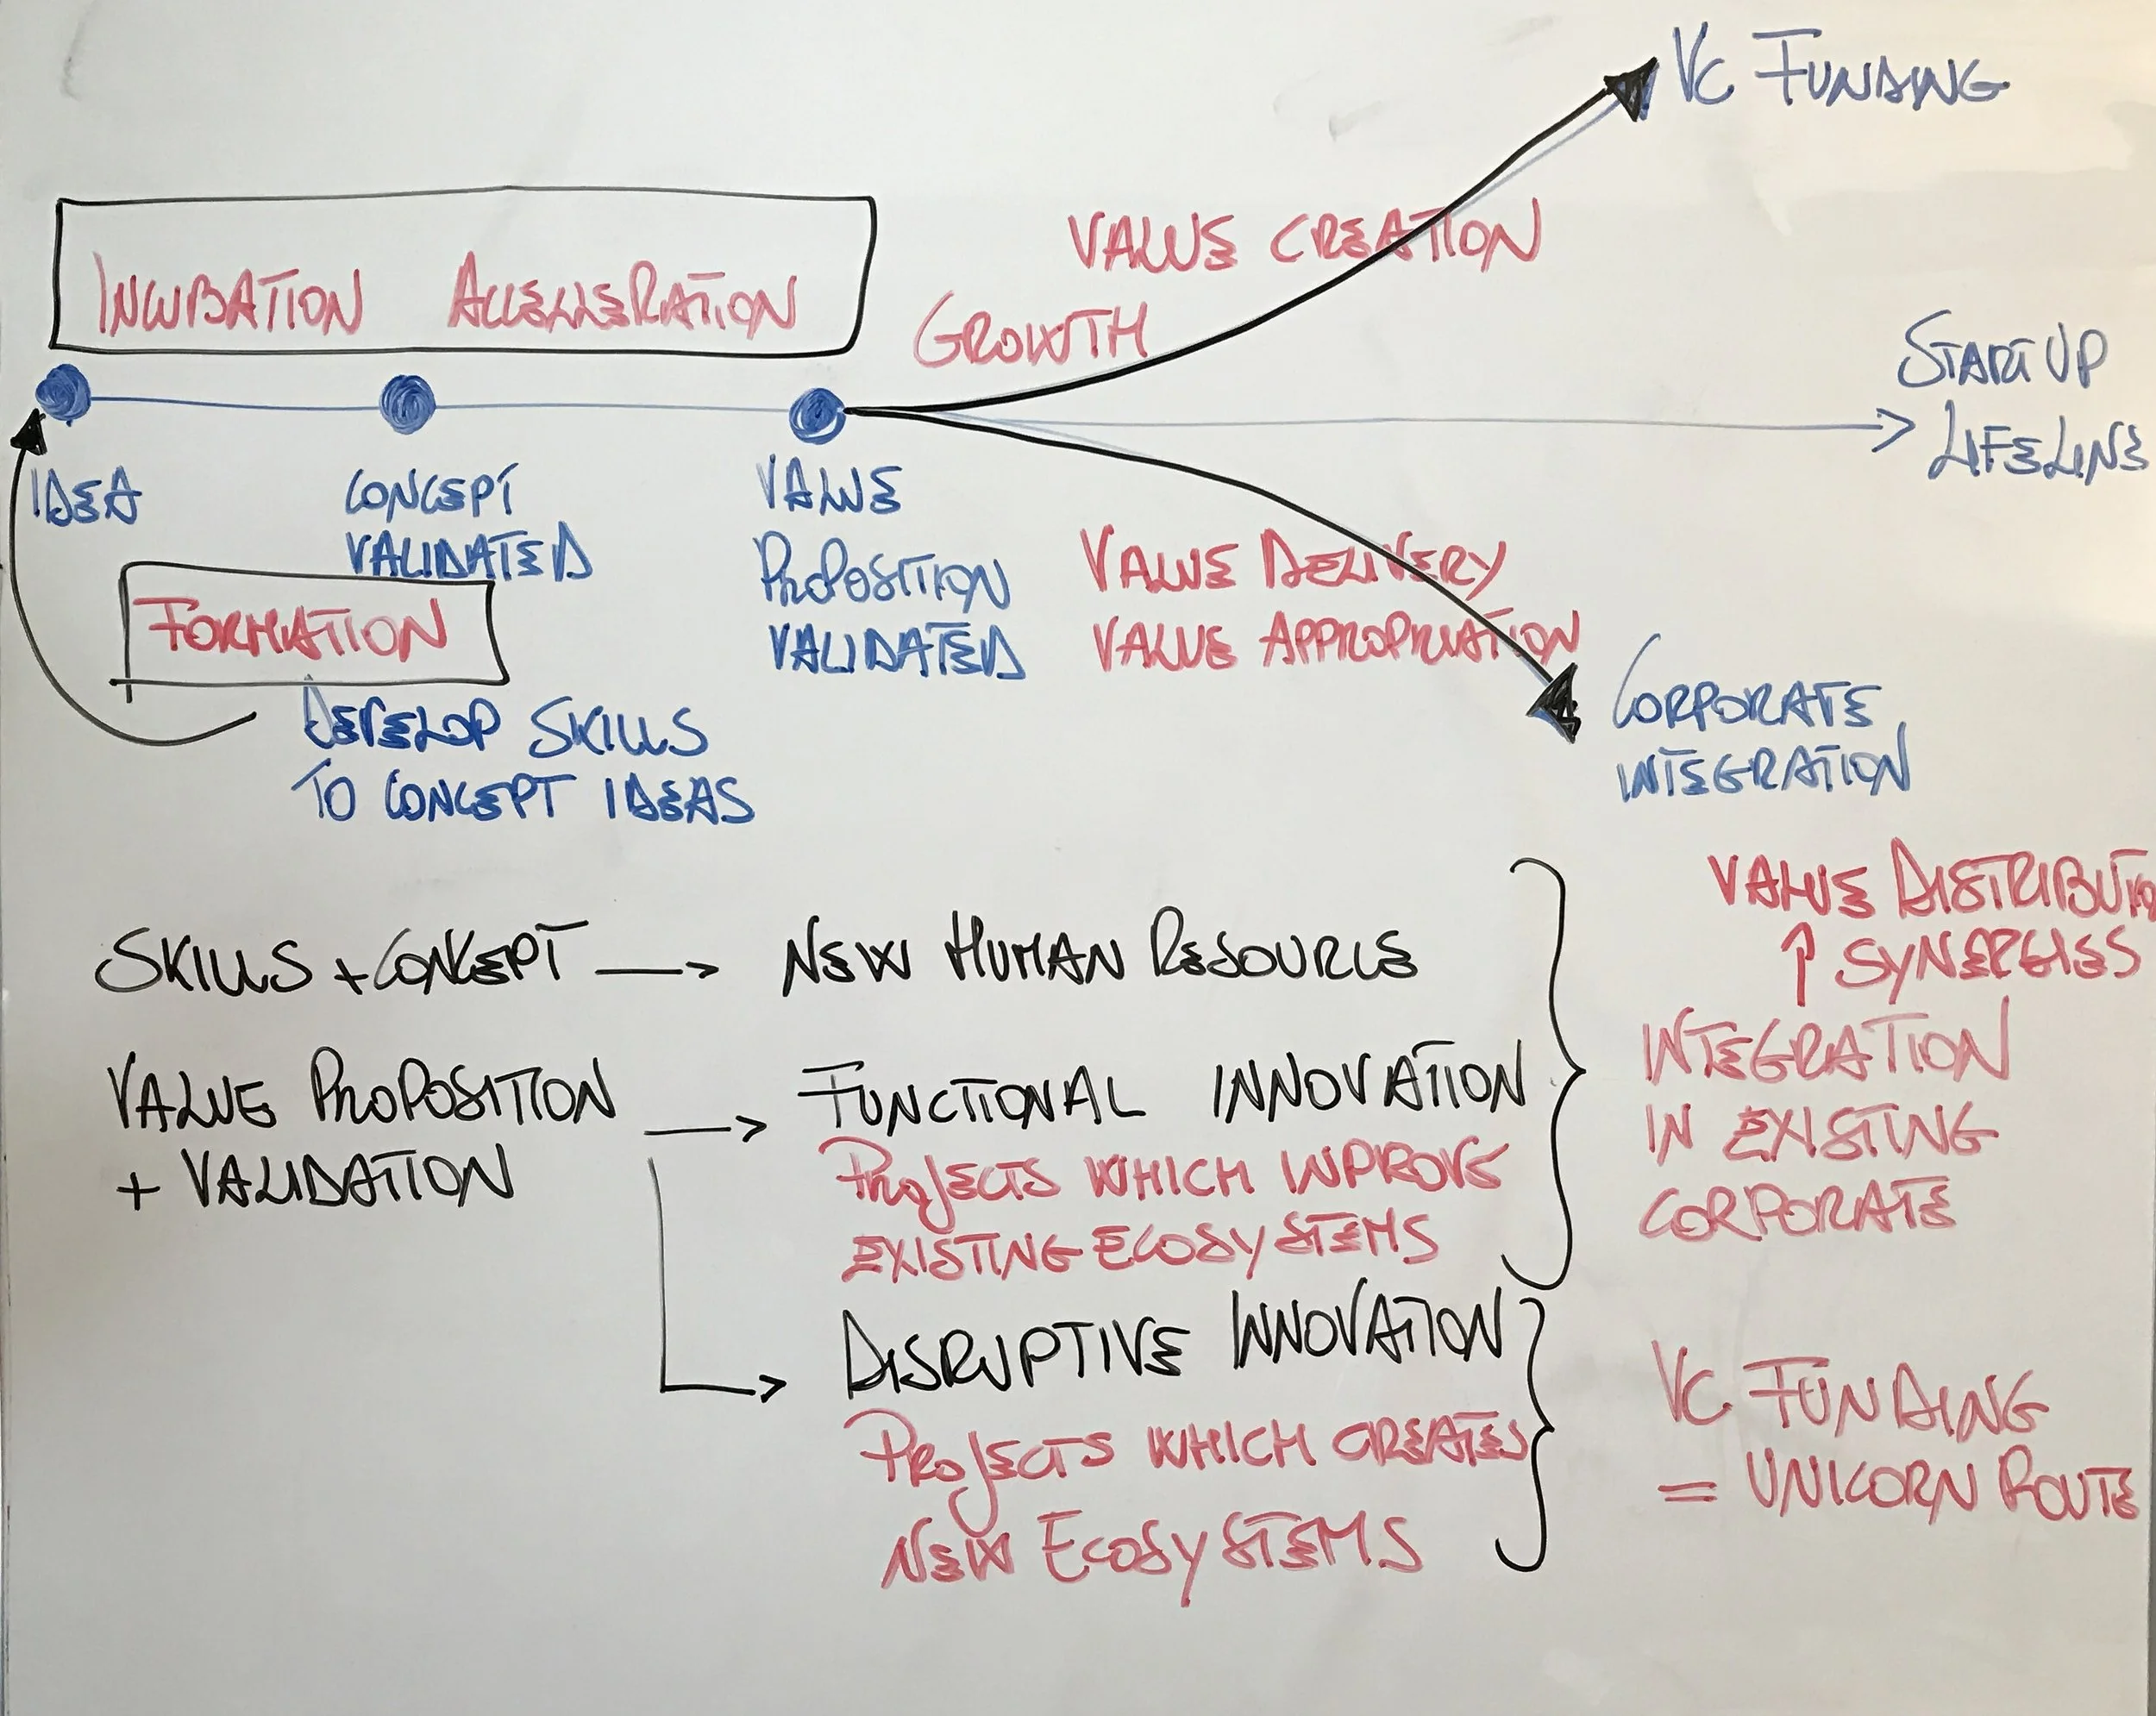 VC FUNDING
VALUE CREATION
INCUBATION ACCELLERATION
GROWTH
STARTUP
LIFELINE
IDEA
CONCEPT
VALIDATED
VALUE
PROPOSITION
VALIDATED
VALUE DELIVERY
VALUE APPROPRIATION
FORMATION
DEVELOP SKILLS
TO CONCEPT IDEAS
CORPORATE
INTEGRATION
SKILLS + CONCEPT → NEW HUMAN RESOURCE
VALUE PROPOSITION
+ VALIDATION
→ FUNCTIONAL INNOVATION
PROJECTS WHICH INPROVE
EXISTING ECOSYSTEMS
→ DISRUPTIVE INNOVATION
PROJECTS WHICH CREATES
NEW ECOSYSTEMS
VALUE DISTRIBUTIO
↑ SYNERGIES
INTEGRATION
IN EXISTING
CORPORATE
VC FUNDING
= UNICORN ROUTE